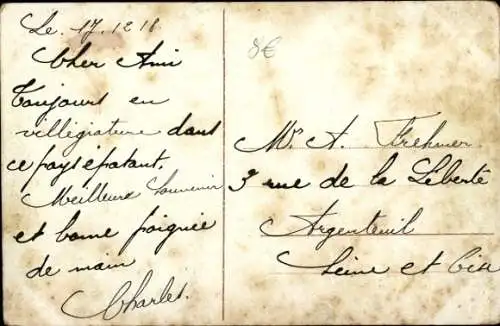 Le. 17.12 18
8€
Cher Ami
Toujours en
villégiature dans
ce pays épatant.
Meilleur Souvenir
et bonne poignée
de main
Charles.
Mr. A. Frehner
3 rue de la Liberté
Argenteuil
Seine et Oise